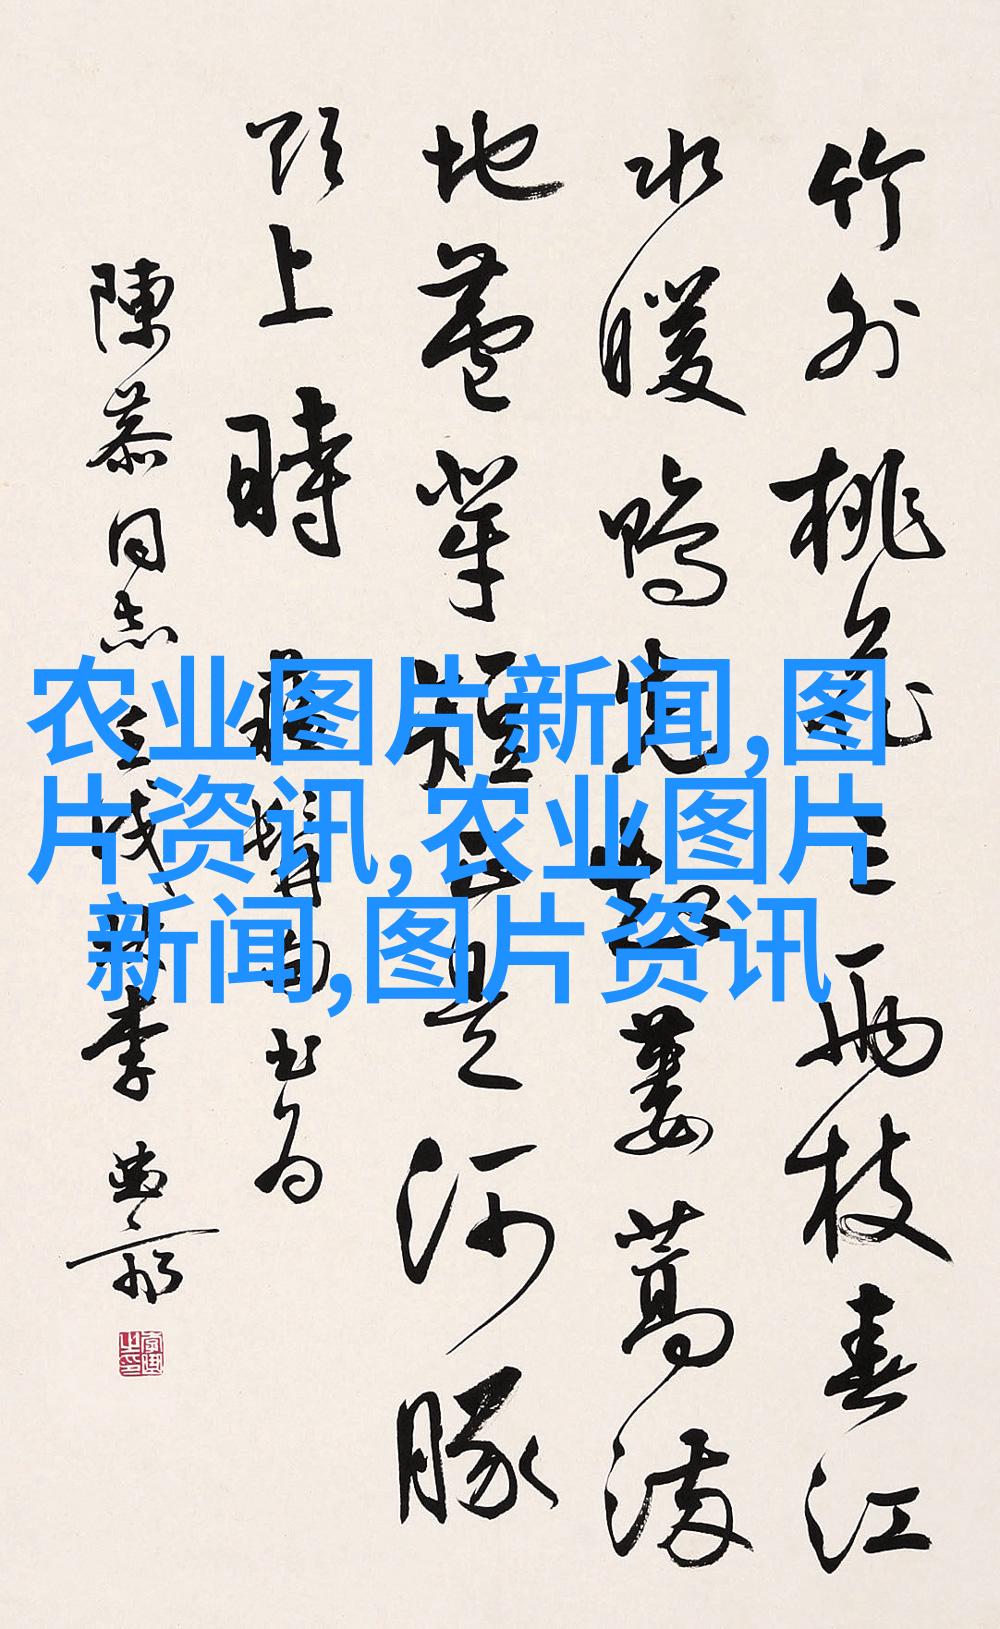 竹外桃花三兩枝春江
水暖鴨先知蔞蒿滿
地蘆芽短正是河豚
欲上時 句書為
陳 同志 李
农业图片新闻,图
片资讯,农业图片
新闻,图片资讯